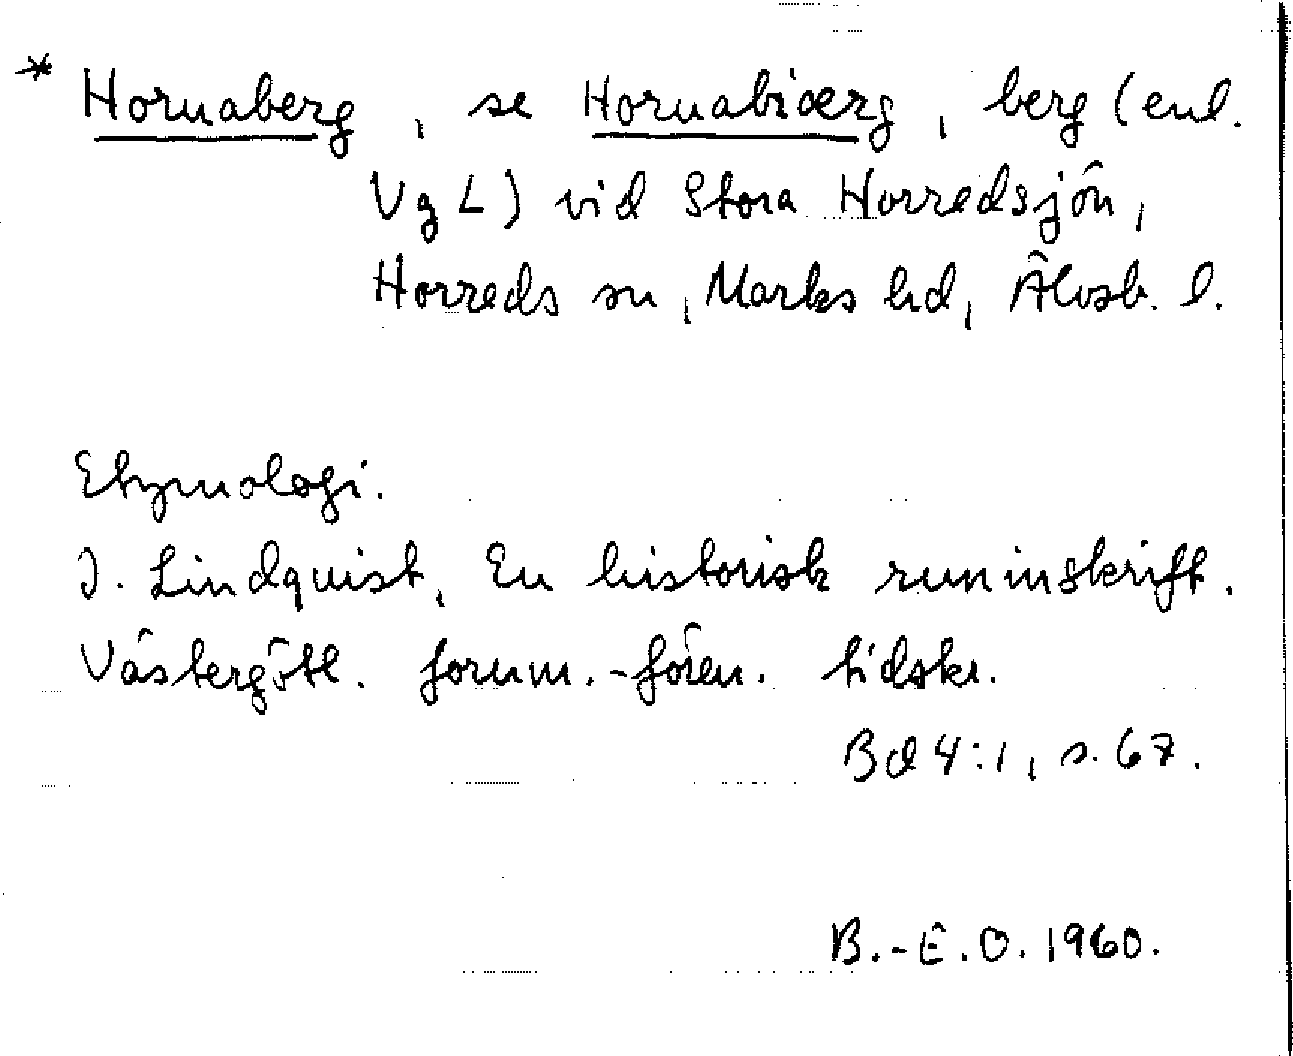 * Hornaberg, se Hornabiærg, berg (enl.
VgL) vid Stora Horredsjön,
Horreds sn, Marks hd, Älvsb. l.
Etymologi.
I. Lindquist, En historisk runinskrift.
Västergötl. fornm.-fören. tidskr.
Bd 4:1, s. 67.
B.-E. O. 1960.